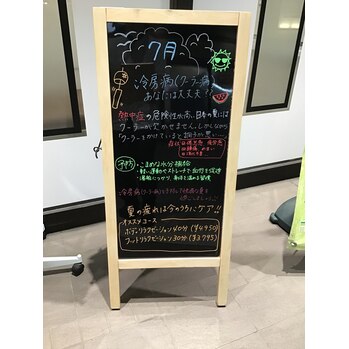 7月
冷房病(クーラー病)
あなたは大丈夫?
熱中症の危険性が高い日本の夏には
クーラーが欠かせません。しかしながら
クーラーをかけていると調子が悪い…
予防 ・こまめな水分補給
・軽い運動やストレッチで血行を促進
冷房病(クーラー病)
夏の疲れは今のうちにケア!!
オススメコース
ボディリラクゼーション40分 (¥4,950)
フットリラクゼーション30分 (¥3,795)